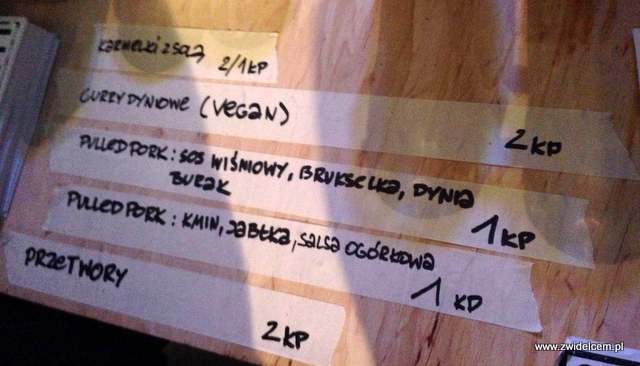 KARMELKI Z SOLĄ
2/1 KP
CURRY DYNIOWE (VEGAN)
2 KP
PULLED PORK: SOS WIŚNIOWY, BRUKSELKA, DYNIA
BURAK
1 KP
PULLED PORK: KMIN, JABŁKA, SALSA OGÓRKOWA
1 KP
PRZETWORY
2 KP
www.zwidelcem.pl